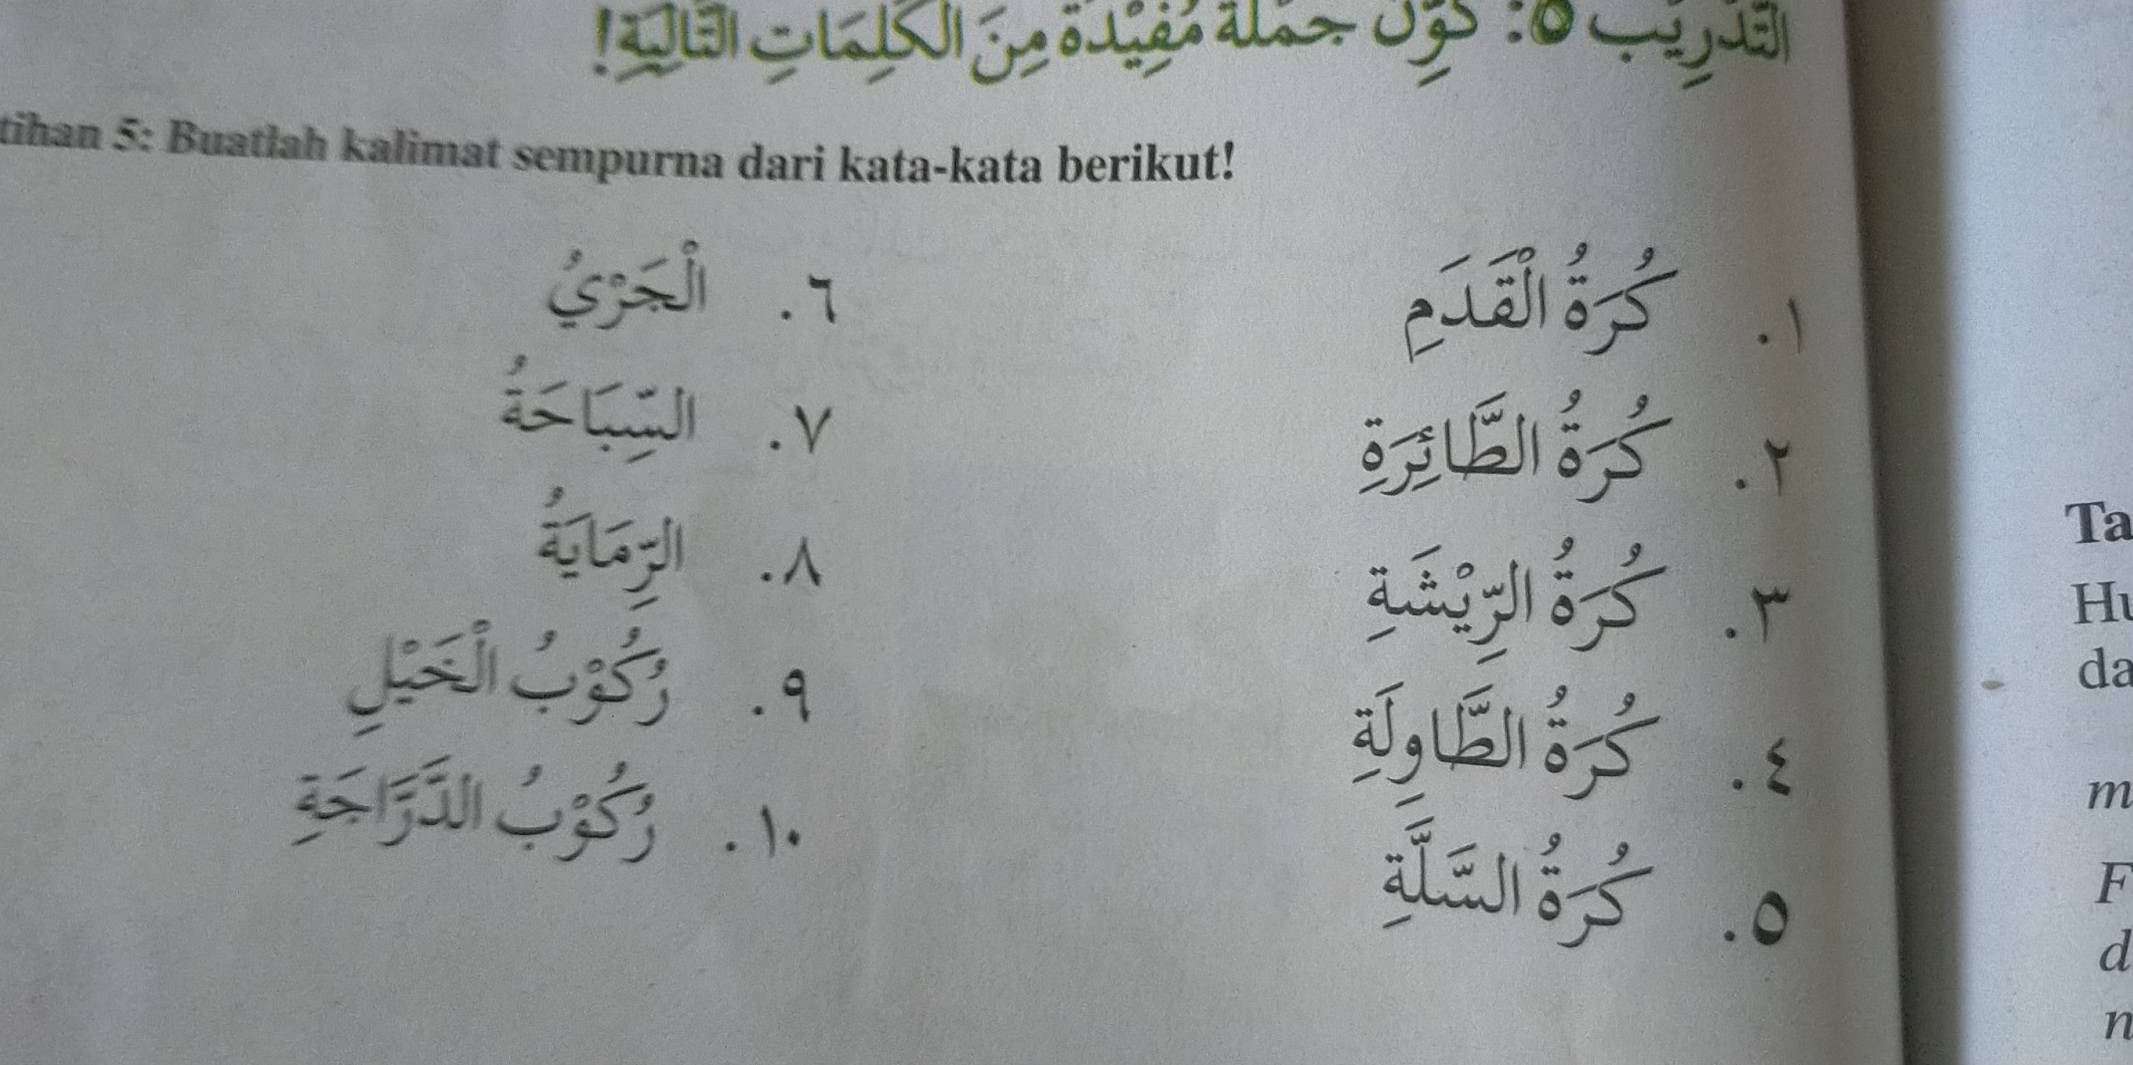 التَّدْرِيْب ٥: كَوِّنْ جُمْلَةً مُفِيْدَةً مِنَ الْكَلِمَاتِ التَّالِيَةِ!
tihan 5: Buatlah kalimat sempurna dari kata-kata berikut!
١. كُرَةُ الْقَدَمِ
٢. كُرَةُ الطَّائِرَةِ
٣. كُرَةُ الرِّيْشَةِ
٤. كُرَةُ الطَّاوِلَةِ
٥. كُرَةُ السَّلَّةِ
٦. الْجَرْيُ
٧. السِّبَاحَةُ
٨. الرِّمَايَةُ
٩. رُكُوْبُ الْخَيْلِ
١٠. رُكُوْبُ الدَّرَّاجَةِ
Ta
Hu
da
m
F
d
n